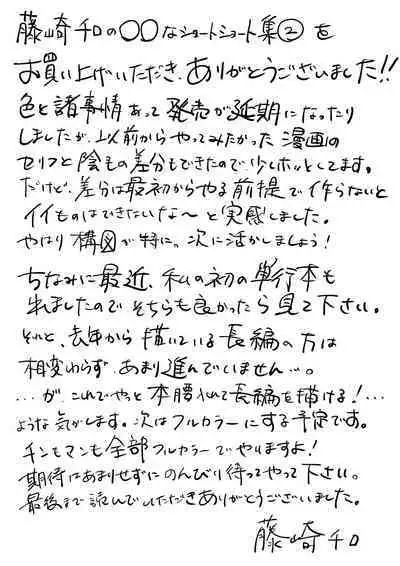 藤崎チロの○○なショートショート集②を
お買い上げいただき、ありがとうございました!!
色と諸事情あって発売が延期になったり
しましたが、以前からやってみたかった漫画の
セリフと陰毛の差分もできたので少しホッとしてます。
だけど、差分は最初からやる前提で作らないと
イイものはできないな〜と実感しました。
やはり構図が特に。次に活かしましょう!
ちなみに最近、私の初の単行本も
出ましたのでそちらも良かったら見て下さい。
それと、去年から描いている長編の方は
相変わらず、あまり進んでいません…。
…が、これでやっと本腰入れて長編を描ける!…
ような気がします。次はフルカラーにする予定です。
チンもマンも全部フルカラーでやりますよ!
期待はあまりせずにのんびり待ってやって下さい。
最後まで読んでいただきありがとうございました。
藤崎チロ